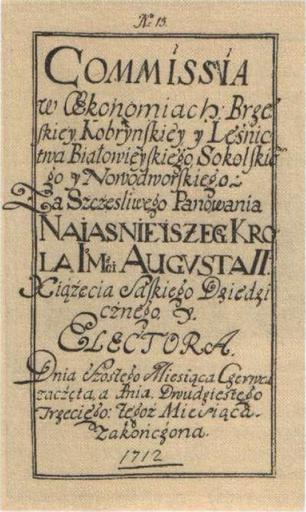 No 13.
COMMISSIA
w Œkonomiach Brzes
skiey Kobrynskiey y Leśnic
twa Białowieyskiego Sokolskie
go y Nowodworskiego
Za Szczesliwego Panowania
NAIASNIEISZEGo KRO
LA IMCi AUGVSTA II.
Xiążecia Saskiego Dziedzi
cznego y
ELECTORA.
Dnia Szostego Miesiąca Czerwca
zaczęta, a Dnia Dwudziestego
Trzeciego tegoż Miesiąca
zakończona.
1712